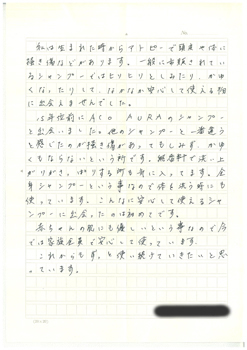 私は生まれた時からアトピーで頭皮や体に
掻き傷などがあります。一般に市販されてい
るシャンプーではヒリヒリとしみたり、かゆ
くなったりして、なかなか安心して使える物
に出会えませんでした。
15年位前にACO AURAのシャンプー
と出会いました。他のシャンプーと一番違う
と感じたのが掻き傷があってもしみず、かゆ
くもならないという所です。無香料で洗い上
がりがさっぱりする所も気に入ってます。全
身シャンプーという事なので体を洗う時にも
使っています。こんなに安心して使えるシャ
ンプーに出会ったのは初めてです。
赤ちゃんの肌にも優しいという事なので今
では家族全員で安心して使っています。
これからもずっと使い続けていきたいと思
っています。